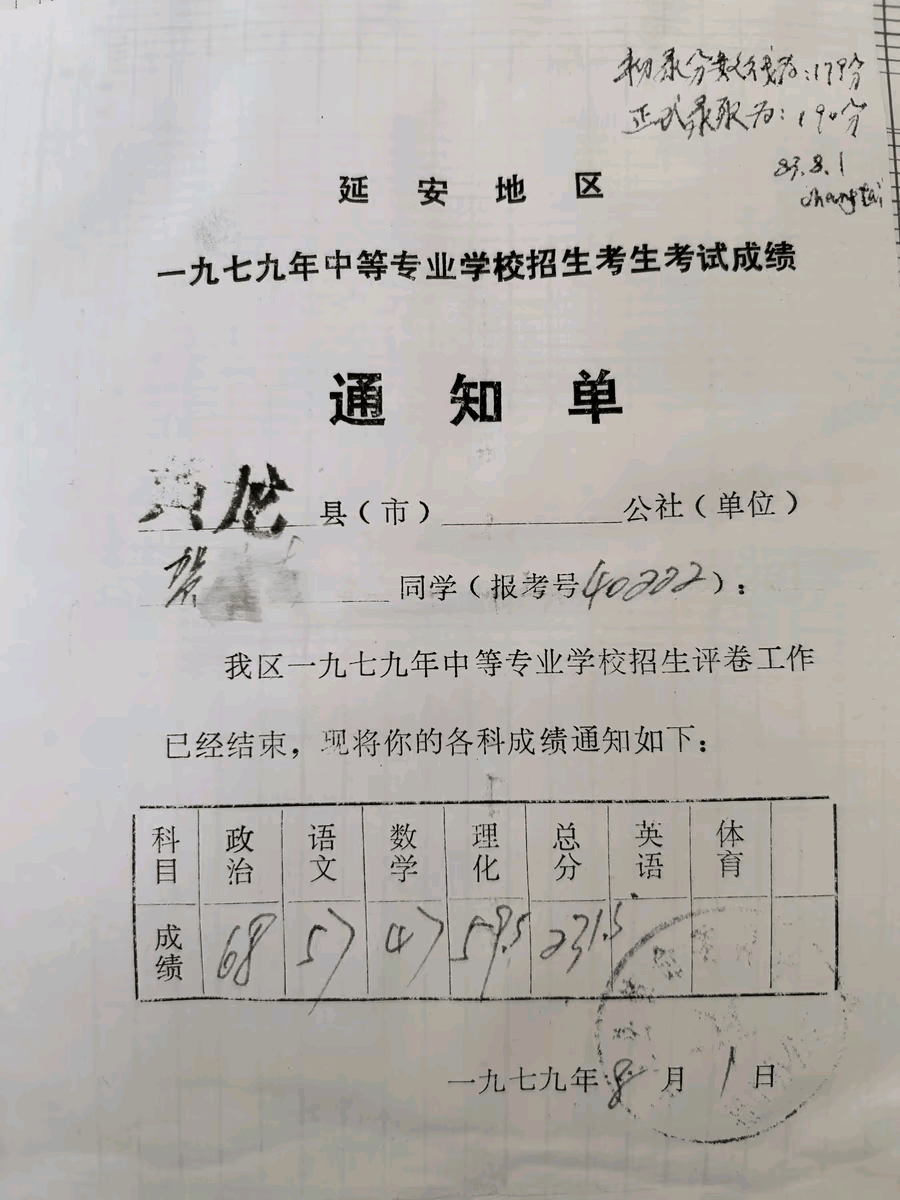 初录分数线为:179分
正式录取为:190分
83.8.1
延安地区
一九七九年中等专业学校招生考生考试成绩
通知单
黄龙县(市)公社(单位)
贺 同学(报考号40222):
我区一九七九年中等专业学校招生评卷工作
已经结束,现将你的各科成绩通知如下:
科目 政治 语文 数学 理化 总分 英语 体育
成绩 68 57 47 59.5 231.5
一九七九年8月1日